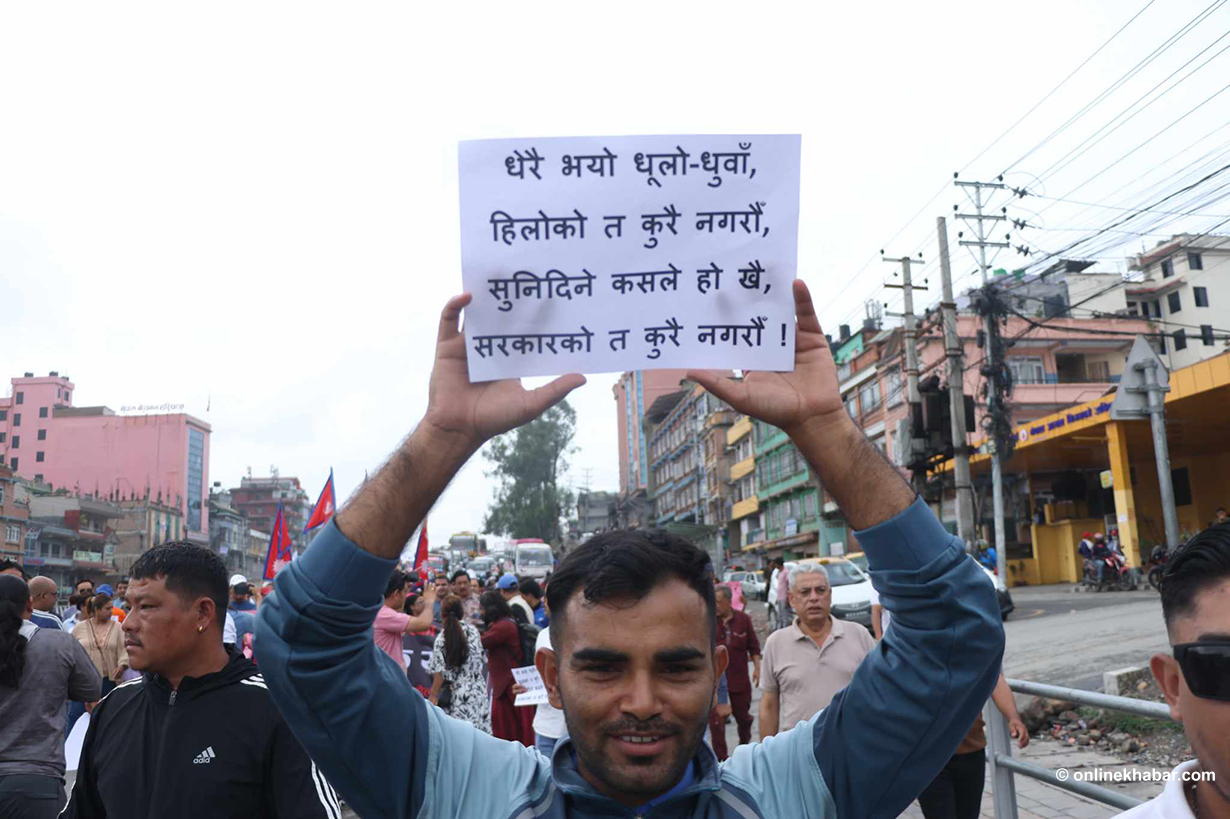 धेरै भयो धूलो-धुवाँ,
हिलोको त कुरै नगरौँ,
सुनिदिने कसले हो खै,
सरकारको त कुरै नगरौँ !
adidas
© onlinekhabar.com